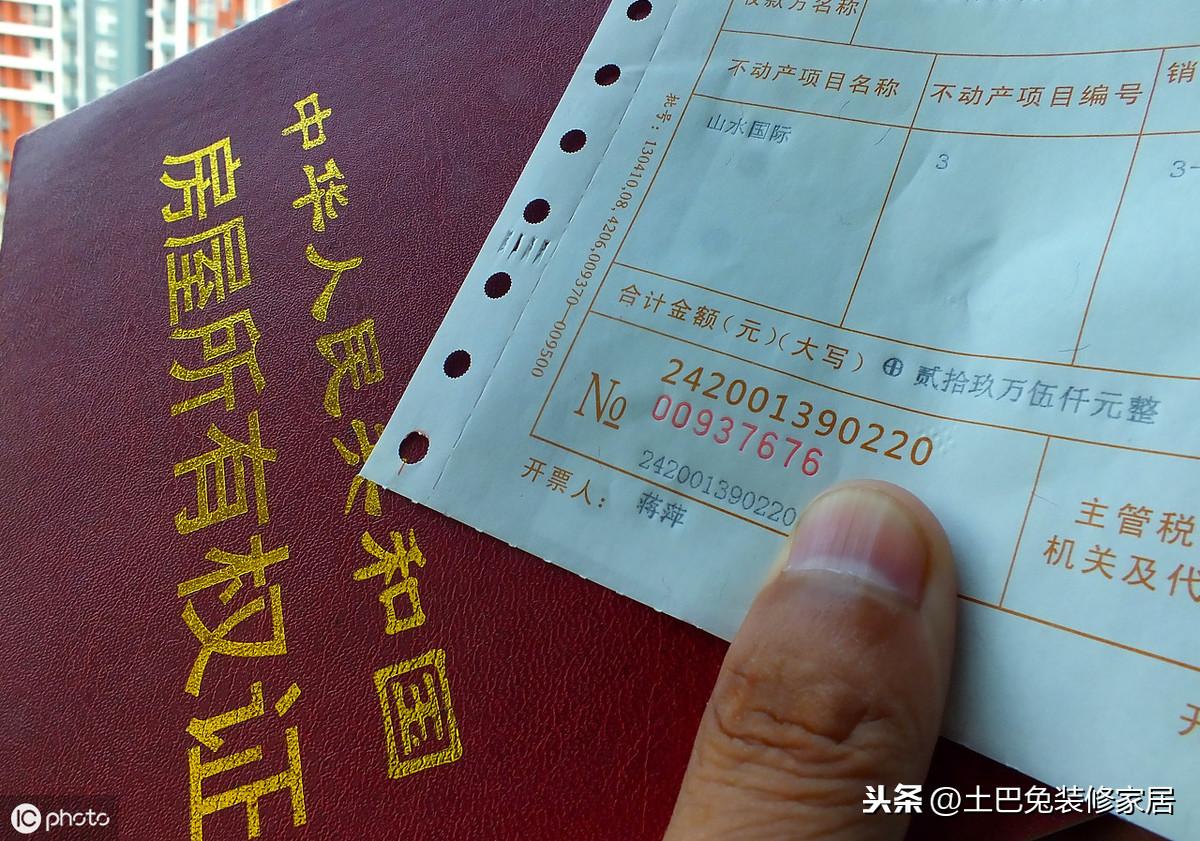 中华人民共和国
房屋所有权证
收款方名称
不动产项目名称
不动产项目编号
销
山水国际
3
3-
号：130410.08.4206.009370—009500
合计金额(元)(大写)
⊕ 贰拾玖万伍仟元整
242001390220
№ 00937676
242001390220
开票人： 蒋萍
主管税
机关及代
开
IC photo
头条 @土巴兔装修家居